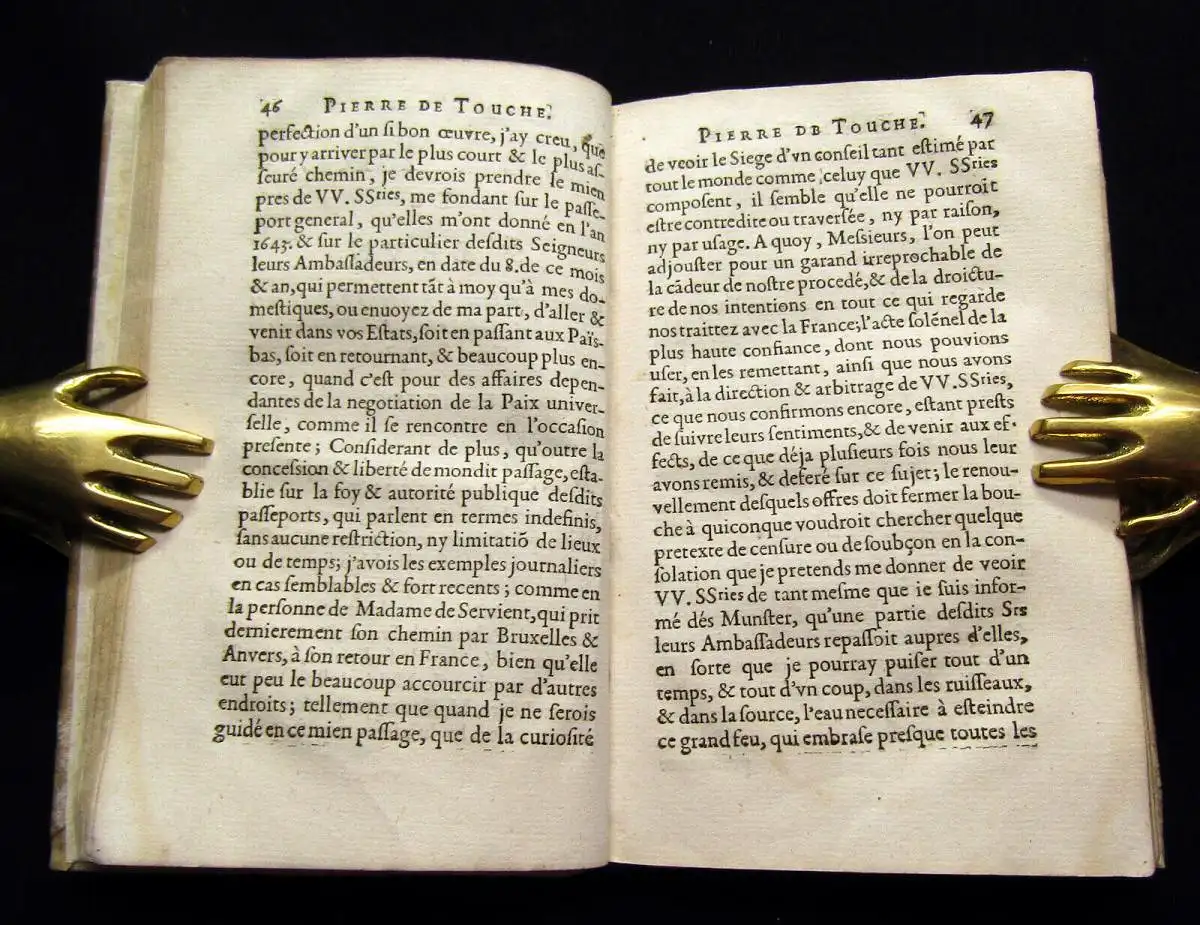 46 PIERRE DE TOUCHE.
perfection d'un ſi bon œuvre, j'ay creu, que
pour y arriver par le plus court & le plus aſ-
ſeuré chemin, je devrois prendre le mien
pres de VV. SSries, me fondant ſur le paſſe-
port general, qu'elles m'ont donné en l'an
1643. & ſur le particulier deſdits Seigneurs
leurs Ambaſſadeurs, en date du 8. de ce mois
& an, qui permettent tãt à moy qu'à mes do-
meſtiques, ou enuoyez de ma part, d'aller &
venir dans vos Eſtats, ſoit en paſſant aux Païs-
bas, ſoit en retournant, & beaucoup plus en-
core, quand c'eſt pour des affaires depen-
dantes de la negotiation de la Paix univer-
ſelle, comme il ſe rencontre en l'occaſion
preſente; Conſiderant de plus, qu'outre la
conceſſion & liberté de mondit paſſage, eſta-
blie ſur la foy & autorité publique deſdits
paſſeports, qui parlent en termes indefinis,
ſans aucune reſtriction, ny limitatiõ de lieux
ou de temps; j'avois les exemples journaliers
en cas ſemblables & fort recents; comme en
la perſonne de Madame de Servient, qui prit
dernierement ſon chemin par Bruxelles &
Anvers, à ſon retour en France, bien qu'elle
eut peu le beaucoup accourcir par d'autres
endroits; tellement que quand je ne ſerois
guidé en ce mien paſſage, que de la curioſité
PIERRE DE TOUCHE. 47
de veoir le Siege d'vn conſeil tant eſtimé par
tout le monde comme celuy que VV. SSries
compoſent, il ſemble qu'elle ne pourroit
eſtre contredite ou traverſée, ny par raiſon,
ny par uſage. A quoy, Meſsieurs, l'on peut
adjouſter pour un garand irreprochable de
la cãdeur de noſtre procedé, & de la droictu-
re de nos intentions en tout ce qui regarde
nos traittez avec la France, l'acte ſolénel de la
plus haute confiance, dont nous pouvions
uſer, en les remettant, ainſi que nous avons
fait, à la direction & arbitrage de VV. SSries,
ce que nous confirmons encore, eſtant preſts
de ſuivre leurs ſentiments, & de venir aux ef-
fects, de ce que déja pluſieurs fois nous leur
avons remis, & deferé ſur ce ſujet; le renou-
vellement deſquels offres doit fermer la bou-
che à quiconque voudroit chercher quelque
pretexte de cenſure ou de ſoubçon en la con-
ſolation que je pretends me donner de veoir
VV. SSries de tant meſme que ie ſuis infor-
mé dés Munſter, qu'une partie deſdits Srs
leurs Ambaſſadeurs repaſſoit aupres d'elles,
en ſorte que je pourray puiſer tout d'un
temps, & tout d'vn coup, dans les ruiſſeaux,
& dans la ſource, l'eau neceſſaire à eſteindre
ce grand feu, qui embraſe preſque toutes les